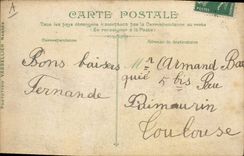 CARTE POSTALE
Tous les pays étrangers n'acceptent pas la Correspondance au recto
(Se renseigner à la Poste)
Correspondance
Adresse du destinataire
Bons baisers
Fernande
Mr Armand
5 bis Rue
Rimaurin
Toulouse